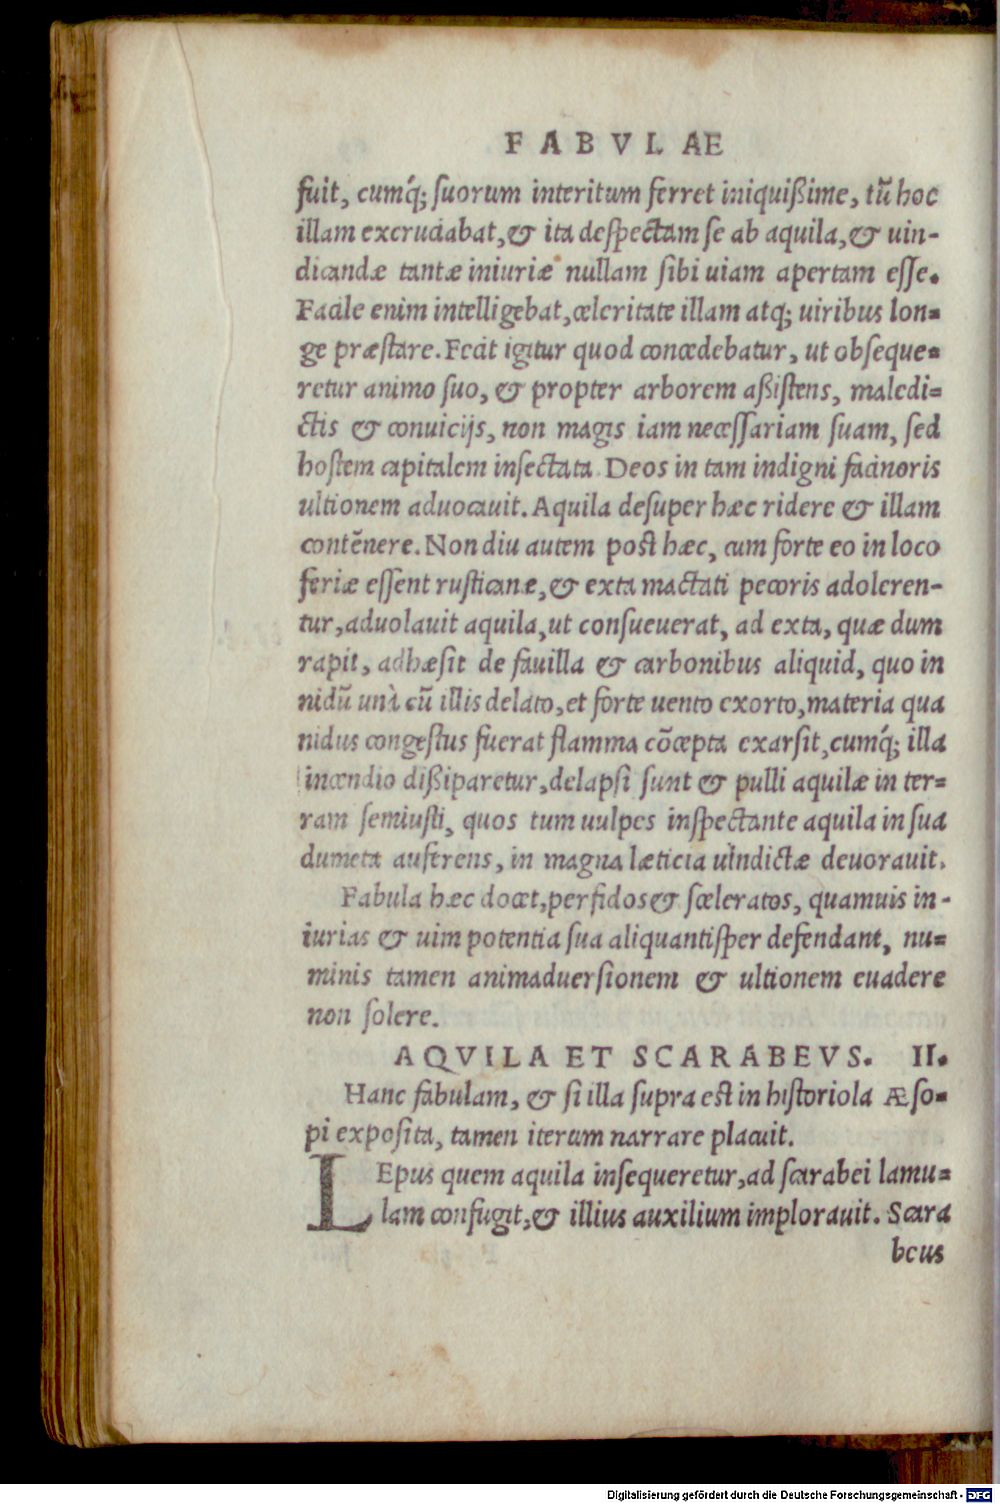 FABVLAE
fuit, cumq́; suorum interitum ferret iniquißime, tũ hoc
illam excruciabat, & ita despectam se ab aquila, & uin-
dicandæ tantæ iniuriæ nullam sibi uiam apertam esse.
Facile enim intelligebat, celeritate illam atq; uiribus lon-
ge præstare. Fecit igitur quod concedebatur, ut obseque-
retur animo suo, & propter arborem aßistens, maledi-
ctis & conuicijs, non magis iam necessariam suam, sed
hostem capitalem insectata Deos in tam indigni facinoris
ultionem aduocauit. Aquila desuper hæc ridere & illam
contẽnere. Non diu autem post hæc, cum forte eo in loco
feriæ essent rusticane, & exta mactati pecoris adoleren-
tur, aduolauit aquila, ut consueuerat, ad exta, quæ dum
rapit, adhæsit de fauilla & carbonibus aliquid, quo in
nidũ unà cũ illis delato, et forte uento exorto, materia qua
nidus congestus fuerat flamma cõcepta exarsit, cumq́; illa
incendio dißiparetur, delapsi sunt & pulli aquilæ in ter-
ram semiusti, quos tum uulpes inspectante aquila in sua
dumeta auferens, in magna læticia uindictæ deuorauit.
Fabula hæc docet, perfidos & sceleratos, quamuis in-
iurias & uim potentia sua aliquantisper defendant, nu-
minis tamen animaduersionem & ultionem euadere
non solere.
AQVILA ET SCARABEVS. II.
Hanc fabulam, & si illa supra est in historiola Æso-
pi exposita, tamen iterum narrare placuit.
LEpus quem aquila insequeretur, ad scarabei lamu-
lam confugit, & illius auxilium implorauit. Scara
beus
Digitalisierung gefördert durch die Deutsche Forschungsgemeinschaft - DFG